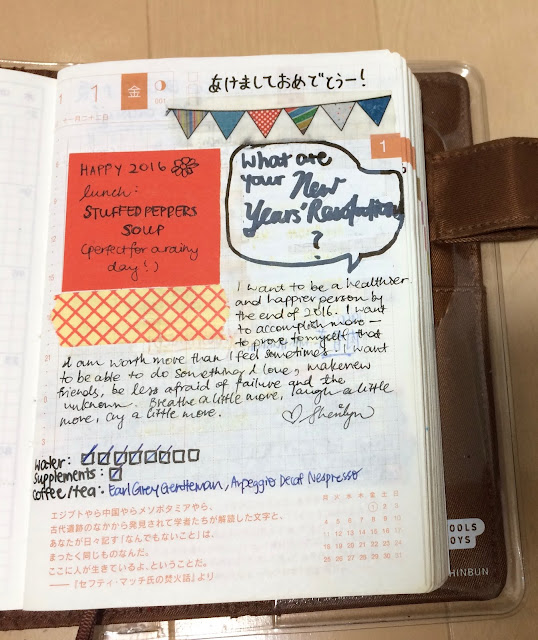 1
1
金
001
十一月二十二日
あけましておめでとうー!
1
HAPPY 2016
lunch:
STUFFED PEPPERS
SOUP
(perfect for a rainy
day!)
What are
your New
Years' Resolution
?
I want to be a healthier
and happier person by
the end of 2016. I want
to accomplish more —
to prove to myself that
I am worth more than I feel sometimes. I want
to be able to do something I love, make new
friends, be less afraid of failure and the
unknown. Breathe a little more, laugh a little
more, cry a little more.
♡ Sherilyn
water:
supplements:
coffee/tea: Earl Grey Gentleman, Arpeggio Decaf Nespresso
エジプトやら中国やらメソポタミアやら、
古代遺跡のなかから発見されて学者たちが解読した文字と、
あなたが日々記す「なんでもないこと」は、
まったく同じものなんだ。
ここに人が生きているよ、ということだ。
——『セフティ・マッチ氏の焚火話』より
月 火 水 木 金 土 日
1 2 3
4 5 6 7 8 9 10
11 12 13 14 15 16 17
18 19 20 21 22 23 24
25 26 27 28 29 30 31
OOLS
OYS
HINBUN